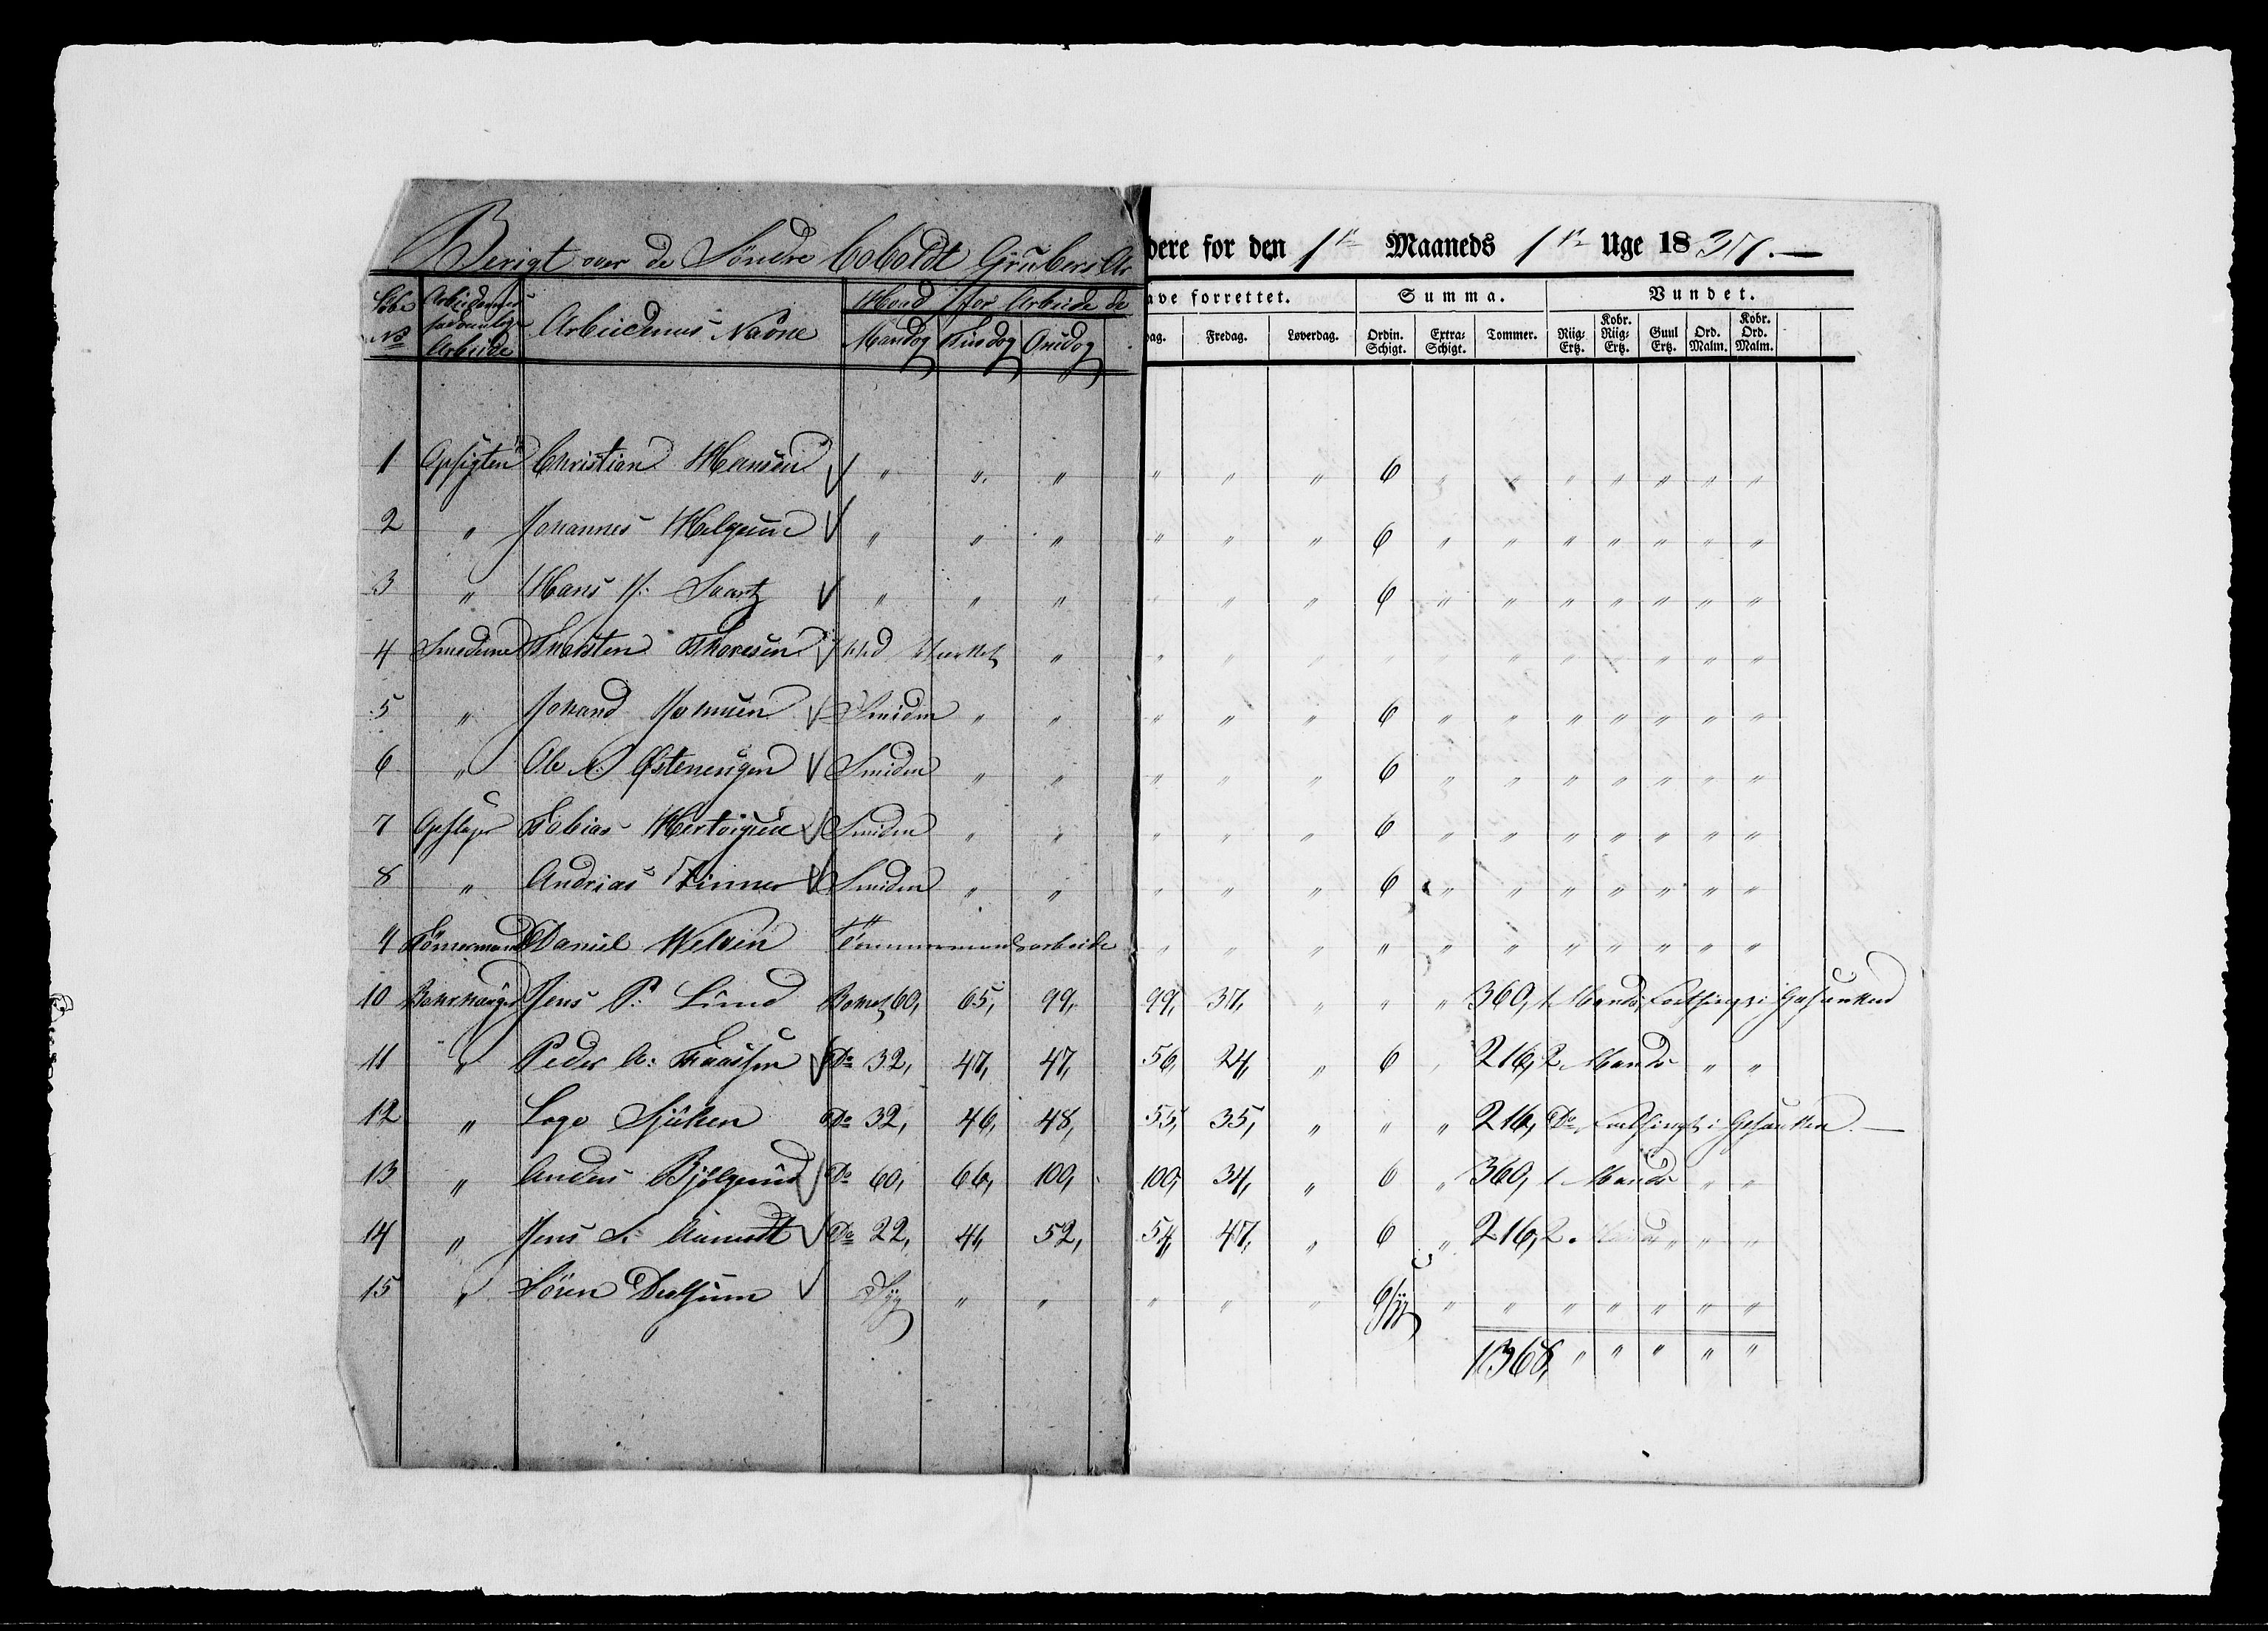 Berigt over de Söndre Coboldt Grubers Ar
dere for den 1te Maaneds 1te Uge 1837.—
Löbe No Arbeidernes Arbeide Arbeidernes Navne Hvad for Arbeide de
ave forrettet. Summa. Vundet.
Mandag Tirsdag Onsdag
dag. Fredag. Løverdag. Ordin. Schigt. Extra-Schigt. Tommer. Riig-Ertz. Kobr. Riig-Ertz. Guul Ertz. Ord. Malm. Kobr. Ord. Malm.
1 Opsigten Christian Hansen √ " " " " " " 6 " " " " " " "
2 " Johannes Helgesen √ " " " " " " 6 " " " " " " "
3 " Hans Svartz √ " " " " " " 6 " " " " " " "
4 Smedene Thorsten Thoresen √ Ved Værket " " " " " " " " " " " "
5 " Johand Johnsen √ Smiden " " " " " 6 " " " " " " "
6 " Ole N: Østenengen √ Smiden " " " " " 6 " " " " " " "
7 Opslager Tobias Hertvigsen √ Smiden " " " " " 6 " " " " " " "
8 " Andrias Finner √ Smiden " " " " " 6 " " " " " " "
9 Tömermand Daniel Welvin Tömmermandsarbeide " " " " " " " " " " "
10 Borhauger Jens P: Lund Boret 60, 65, 99, 99, 37, " " " 360, 1 Mands i Gesenken
11 " Peder A: Faassen √ Do 32, 47, 47, 56, 24, " 6 " 216, 2 Mands " "
12 " Lage Sjulsen Do 32, 46, 48, 55, 35, " " " 216, Do i Gesenken.—
13 " Anders Bjölgerud √ Do 60, 66, 100, 100, 34, " 6 " 360, 1 Mands " "
14 " Jens S: Aamodt √ Do 22, 41, 52, 54, 47, " 6 " 216, 2 Mands " " "
15 " Sören √ Syg " " " " " 6/Syg " " " " " " "
1368, " " " " "